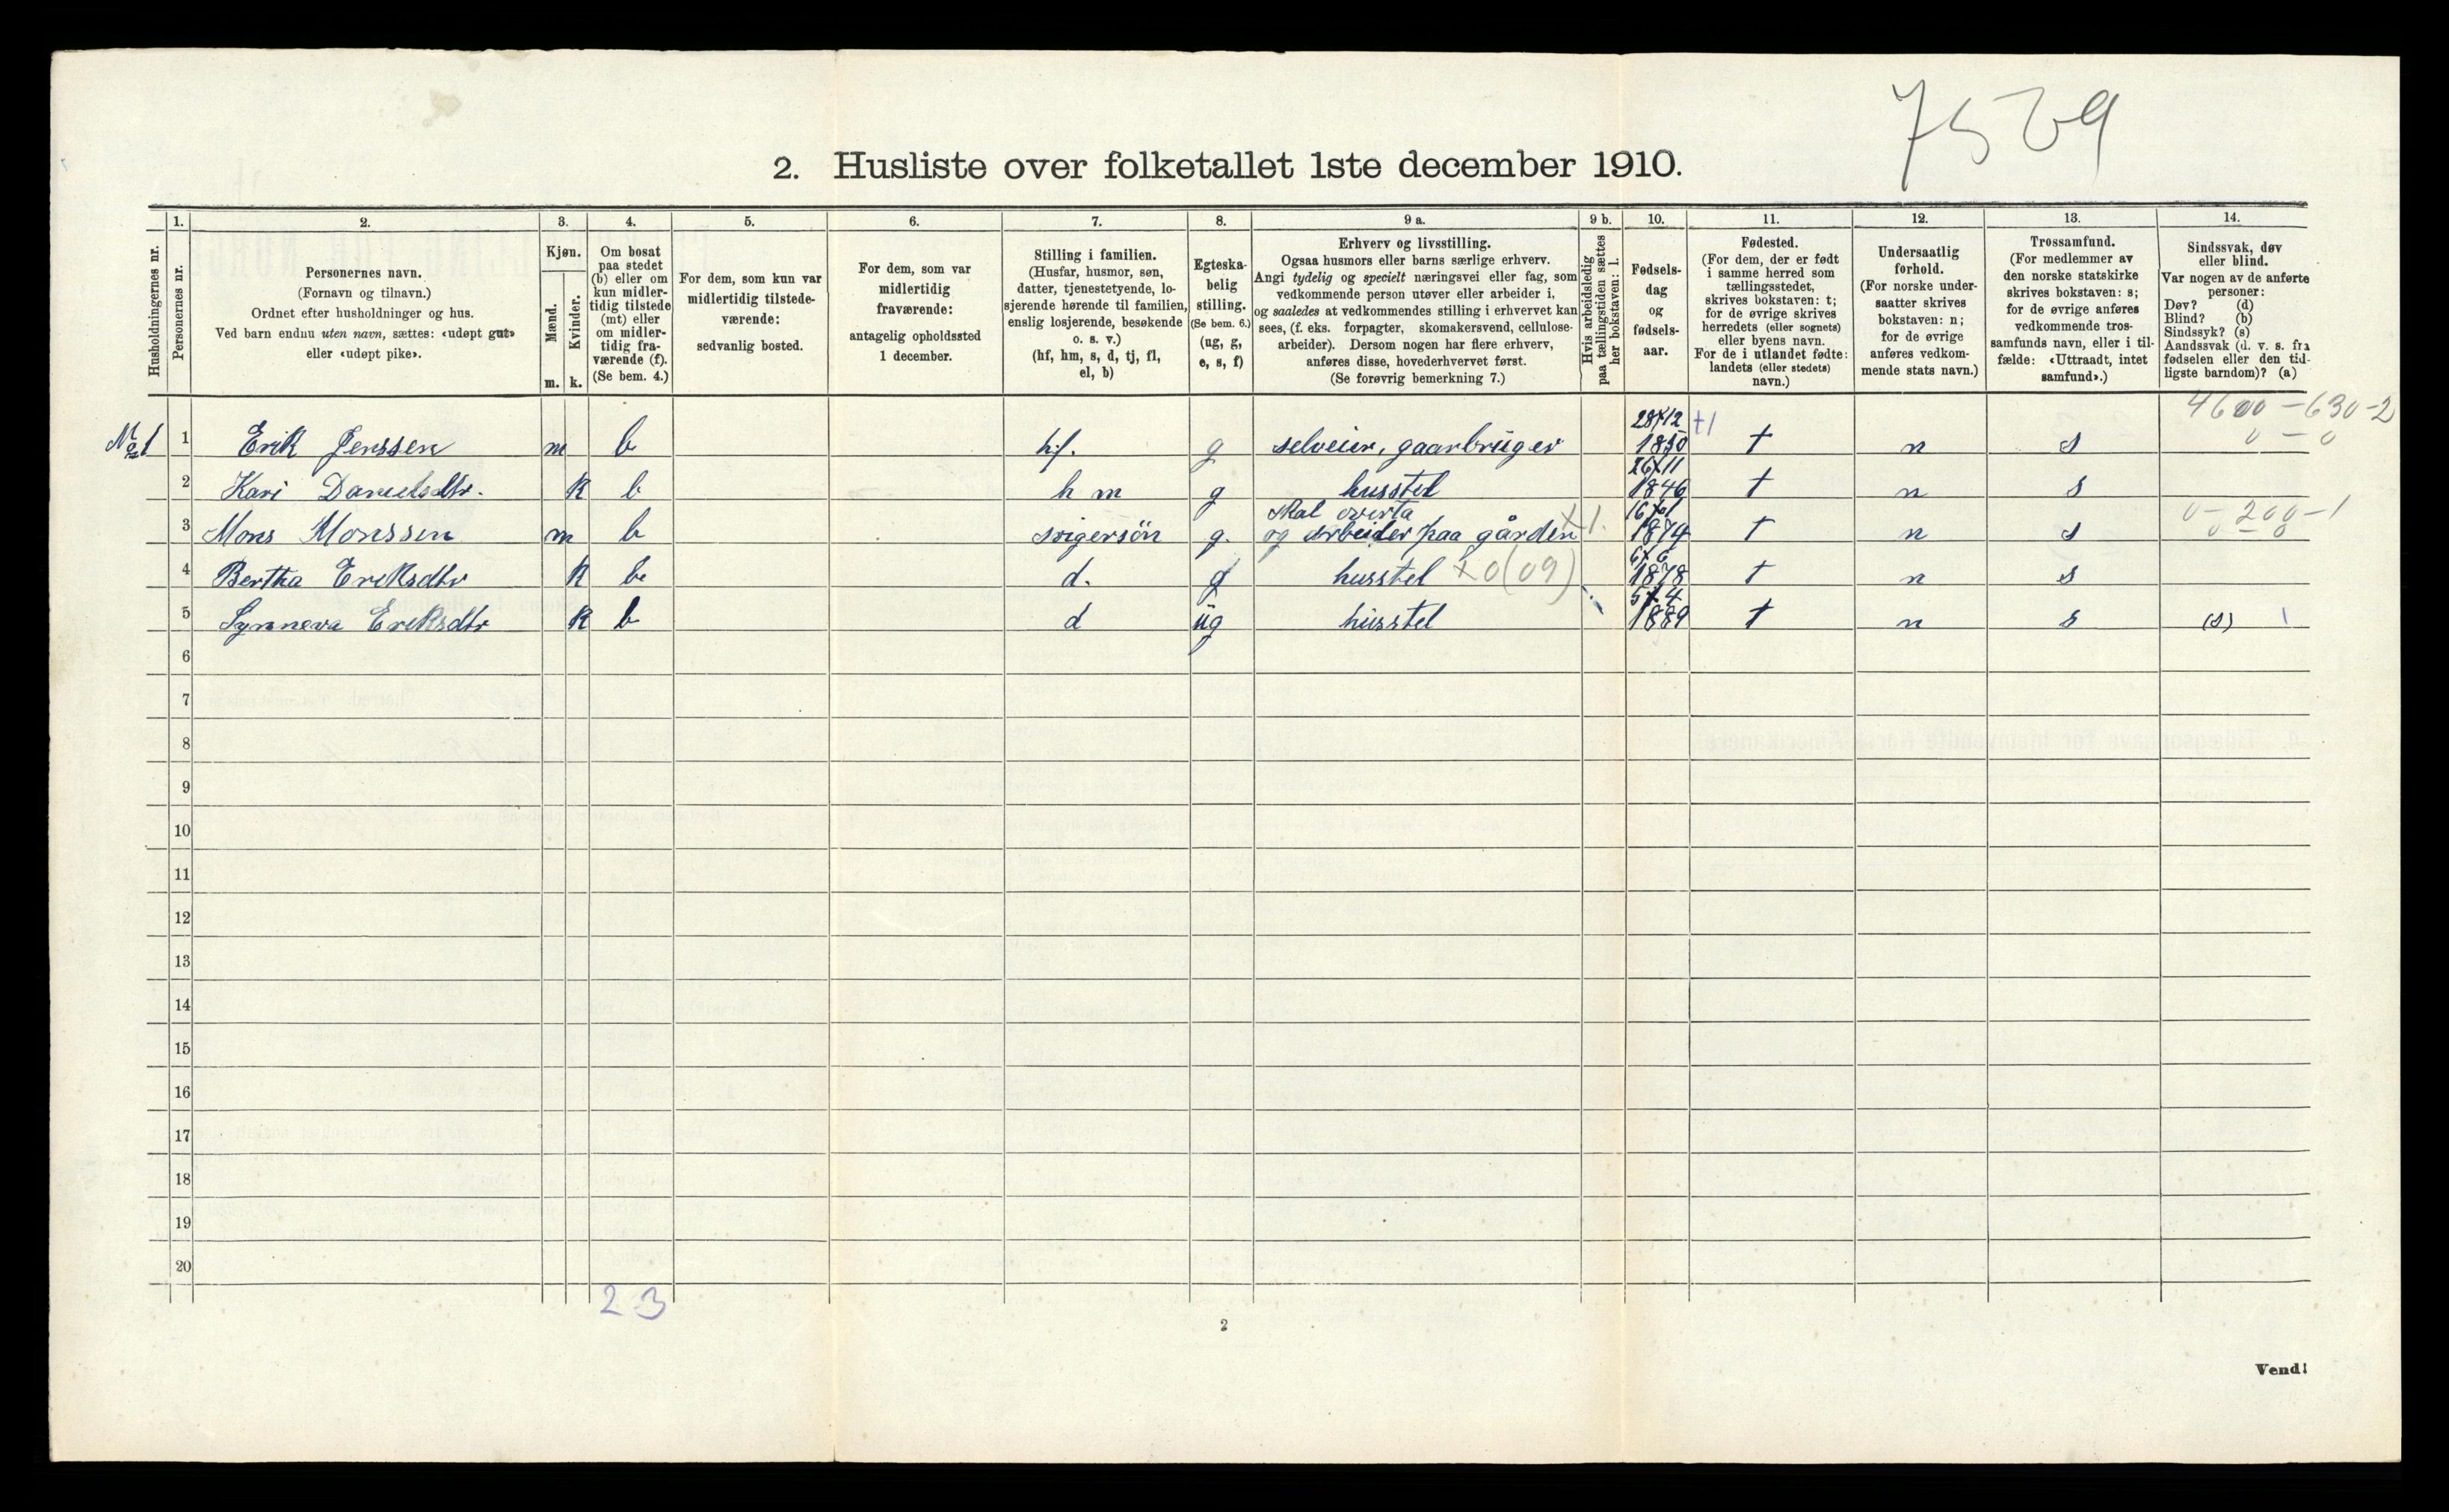 7529
2. Husliste over folketallet 1ste december 1910.
1. 2. 3. 4. 5. 6. 7. 8. 9 a. 9 b. 10. 11. 12. 13. 14.
Husholdningernes nr.
Personernes nr.
Personernes navn.
(Fornavn og tilnavn.)
Ordnet efter husholdninger og hus.
Ved barn endnu uten navn, sættes: «udøpt gut»
eller «udøpt pike».
Kjøn.
Mænd.
Kvinder.
m. k.
Om bosat
paa stedet
(b) eller om
kun midler-
tidig tilstede
(mt) eller
om midler-
tidig fra-
værende (f).
(Se bem. 4.)
For dem, som kun var
midlertidig tilstede-
værende:
sedvanlig bosted.
For dem, som var
midlertidig
fraværende:
antagelig opholdssted
1 december.
Stilling i familien.
(Husfar, husmor, søn,
datter, tjenestetyende, lo-
sjerende hørende til familien,
enslig losjerende, besøkende
o. s. v.)
(hf, hm, s, d, tj, fl,
el, b)
Egteska-
belig
stilling.
(Se bem. 6.)
(ug, g,
e, s, f)
Erhverv og livsstilling.
Ogsaa husmors eller barns særlige erhverv.
Angi tydelig og specielt næringsvei eller fag, som
vedkommende person utøver eller arbeider i,
og saaledes at vedkommendes stilling i erhvervet kan
sees, (f. eks. forpagter, skomakersvend, cellulose-
arbeider). Dersom nogen har flere erhverv,
anføres disse, hovederhvervet først.
(Se forøvrig bemerkning 7.)
Hvis arbeidsledig
paa tællingstiden sættes
her bokstaven: l.
Fødsels-
dag
og
fødsels-
aar.
Fødested.
(For dem, der er født
i samme herred som
tællingsstedet,
skrives bokstaven: t;
for de øvrige skrives
herredets (eller sognets)
eller byens navn.
For de i utlandet fødte:
landets (eller stedets)
navn.)
Undersaatlig
forhold.
(For norske under-
saatter skrives
bokstaven: n;
for de øvrige
anføres vedkom-
mende stats navn.)
Trossamfund.
(For medlemmer av
den norske statskirke
skrives bokstaven: s;
for de øvrige anføres
vedkommende tros-
samfunds navn, eller i til-
fælde: «Uttraadt, intet
samfund».)
Sindssvak, døv
eller blind.
Var nogen av de anførte
personer:
Døv? (d)
Blind? (b)
Sindssyk? (s)
Aandssvak (d. v. s. fra
fødselen eller den tid-
ligste barndom)? (a)
4600-630-2
0-0
28/12
№1 1 Erik Jenssen m b hf. g selveier, gaarbruger 1830 t n s
26/11
2 Kari Danielsdtr. k b h m g husstel 1846 t n s
skal overta 16/1 0-200-1
3 Mons Monssen m b svigersön g. og arbeider paa gården x1. 1874 t n s 0-0
6/6
4 Bertha Eriksdtr k b d. g husstel x0(09) 1878 t n s
5/4
5 Synneva Eriksdtr k b d üg husstel 1889 t n s (s) 1
6
7
8
9
10
11
12
13
14
15
16
17
18
19
20
2 3
2
Vend!